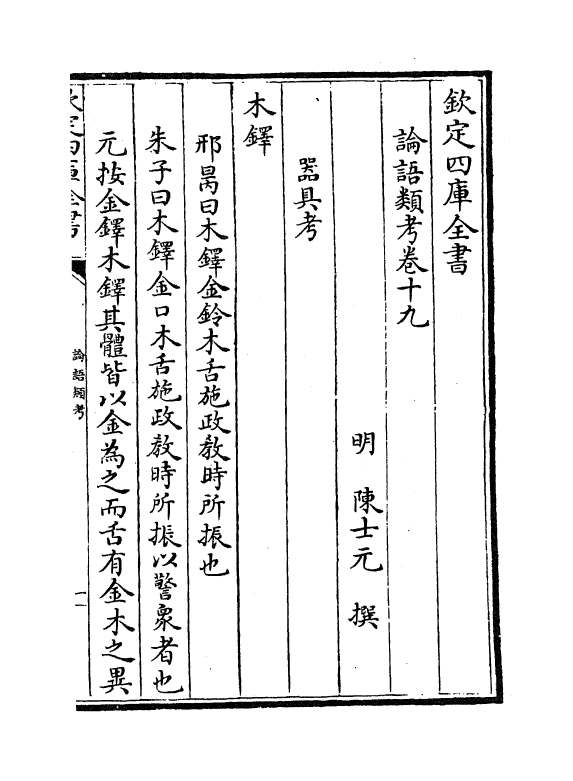 欽定四庫全書
論語類考卷十九
明 陳士元 撰
器具考
木鐸
邢昺曰木鐸金鈴木舌施政教時所振也
朱子曰木鐸金口木舌施政教時所振以警衆者也
元按金鐸木鐸其體皆以金為之而舌有金木之異
欽定四庫全書
論語類考
一